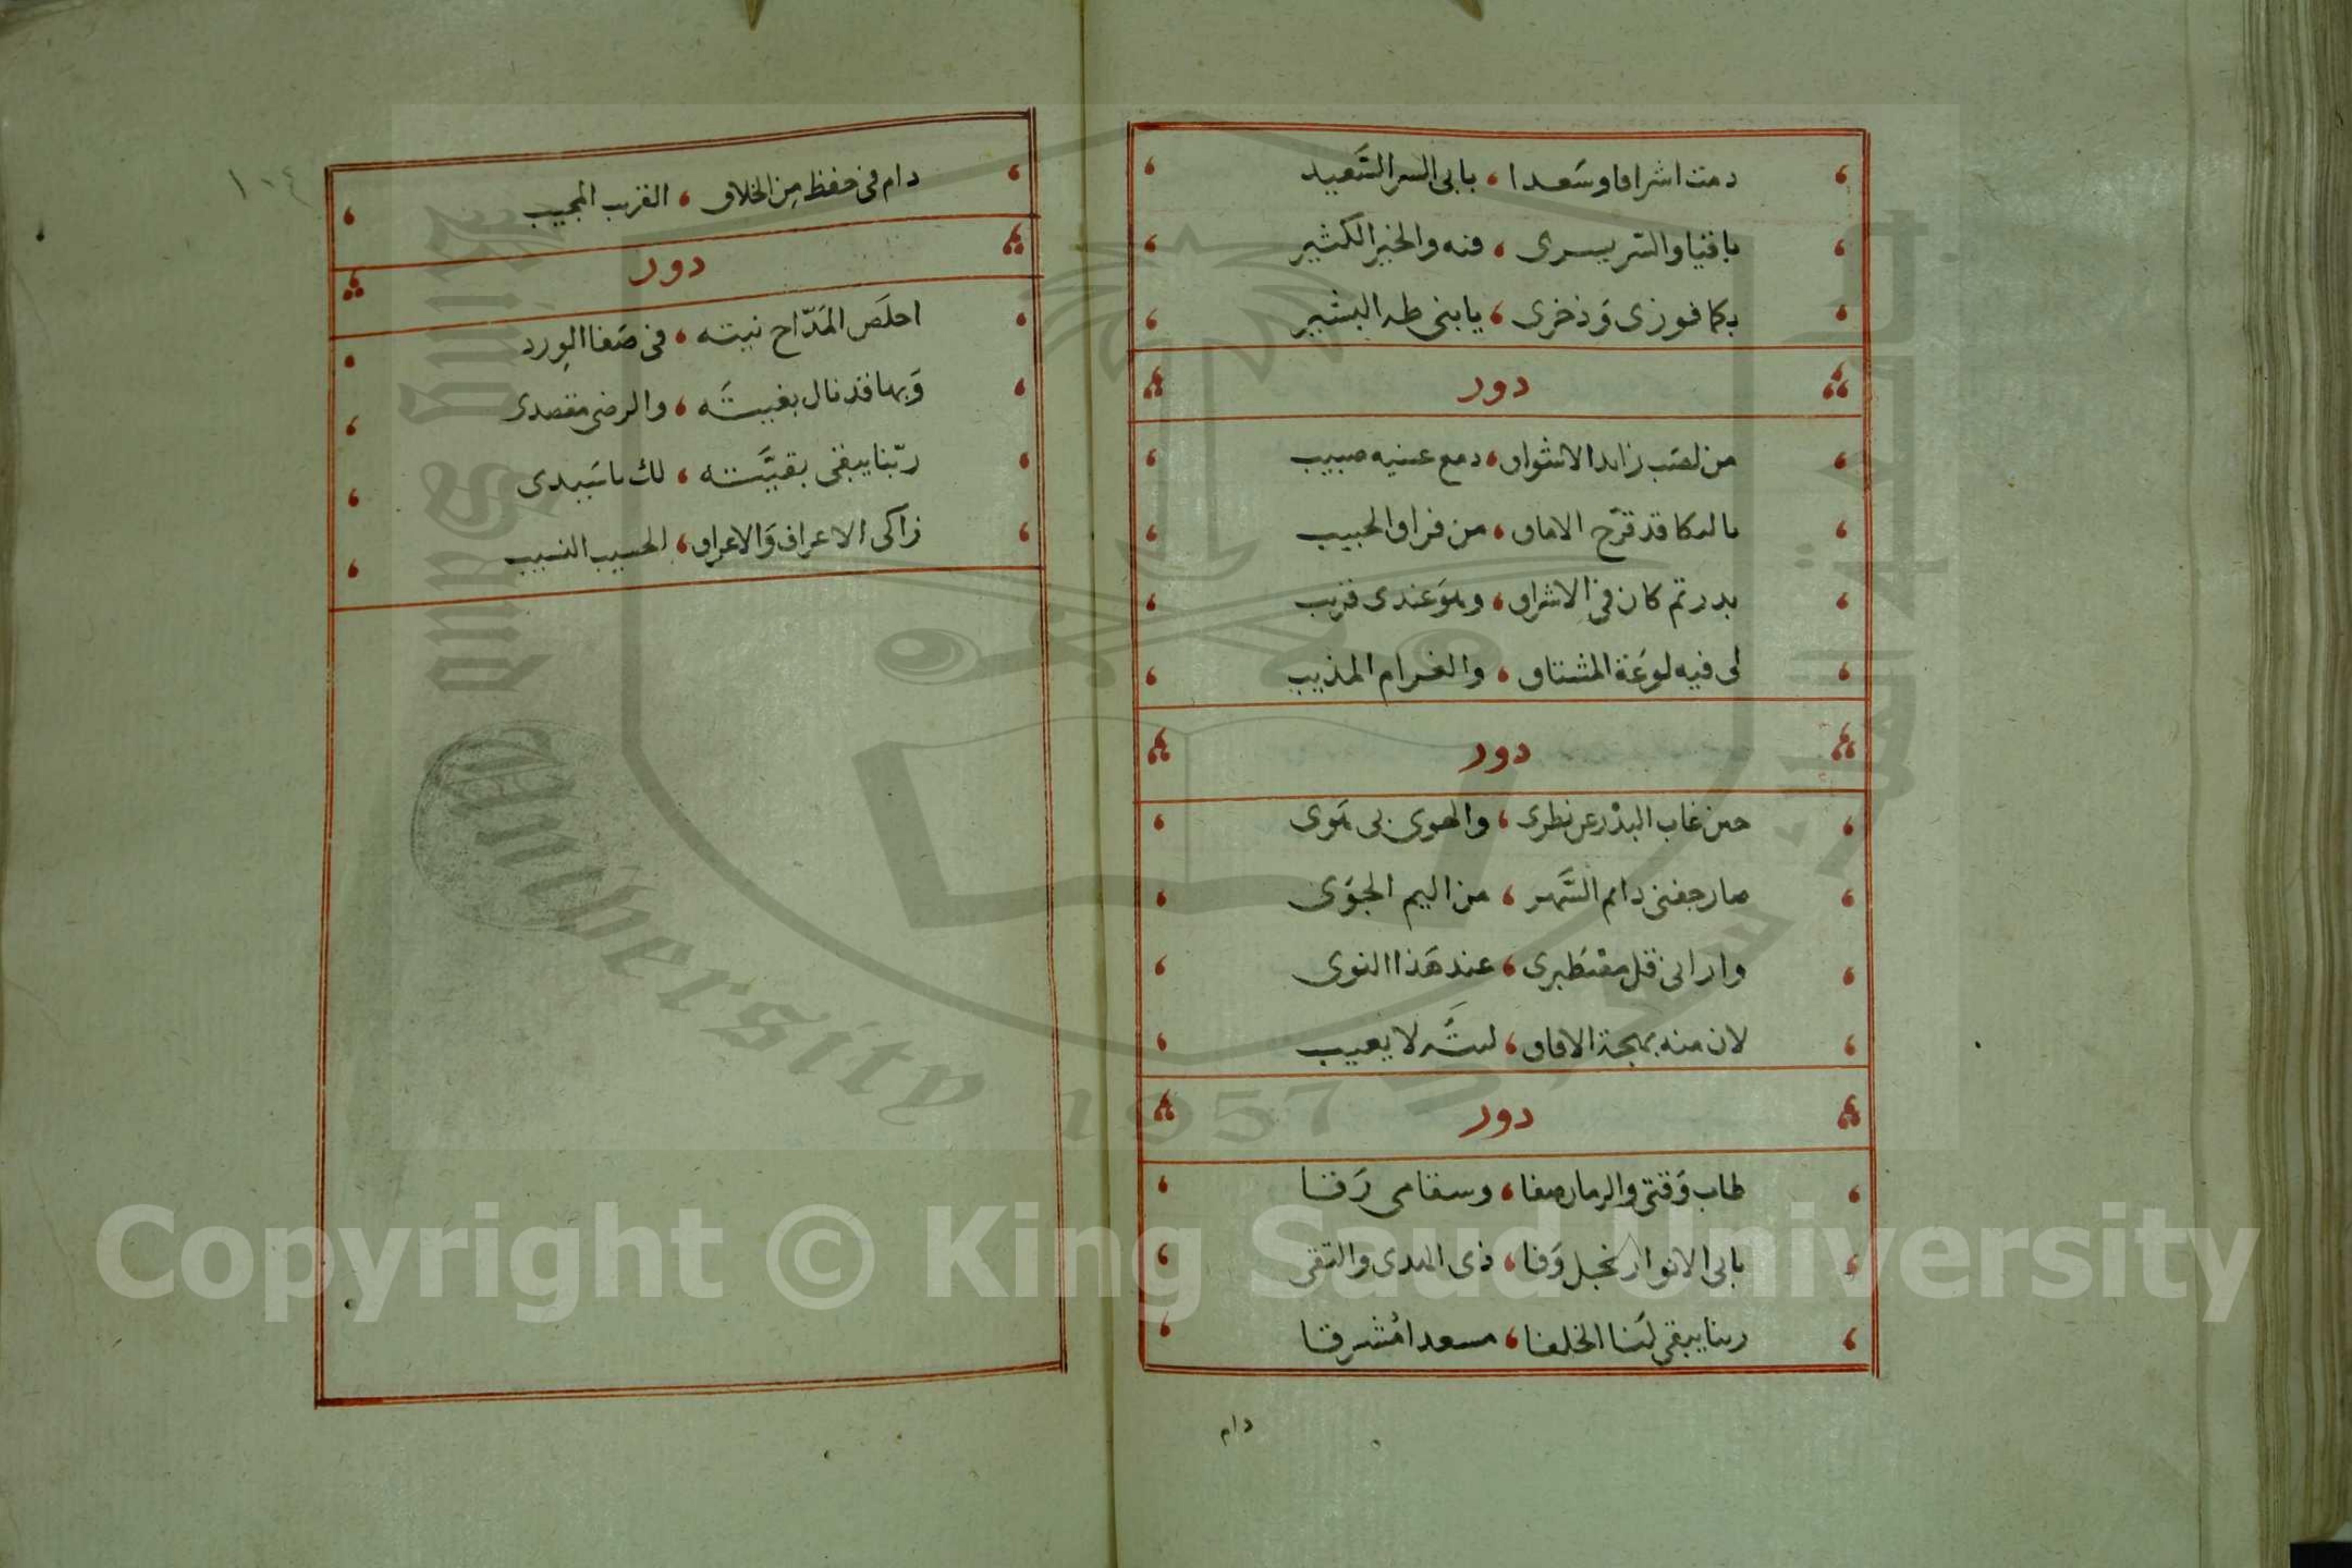 دمت اشراقا وسعدا ، بابى السر السَّعيد
يا فتيا والسر يسرى ، فنه والخير الكثير
بكما فوزى وَذخرى ، يا بنى طه البشير
دور
من لصَب زايد الاشواق ، دمع عينيه صبيب
ما لبكا قد قرّح الاماق ، من فراق الحبيب
بدر تم كان فى الاشراق ، وهوَ عندى قريب
لى فيه لوعَة المشتاق ، والغرام المذيب
دور
حين غاب البدْر عن نظرى ، والهوى بى هَوى
صار جفنى دام السَّهر ، من اليم الجوَى
وارانى قل مصْطَبرى ، عند هَذا النوى
لان منه بهجة الافاق ، ليتَه لا يغيب
دور
طاب وَقتى والزمان صفا ، وسقامى رَقا
بابى الانوار نجل وَفا ، ذى الهدى والتقى
ربنا يبقى لنا الخلفا ، مسعدا مُشرقا
دام
١٠٤
دام فى حفظ مِن الخلاق ، القريب المجيب
دور
اخلَص المَدّاح نيته ، فى صَفا الوِرد
وَبها قد نال بغيتَه ، والرضى مقصدى
ربّنا يبقى بقيَّته ، لك يا سَيدى
زاكى الاعراف وَالاعراق ، الحسيب النسيب
Copyright © King Saud University
King Saud University 1957